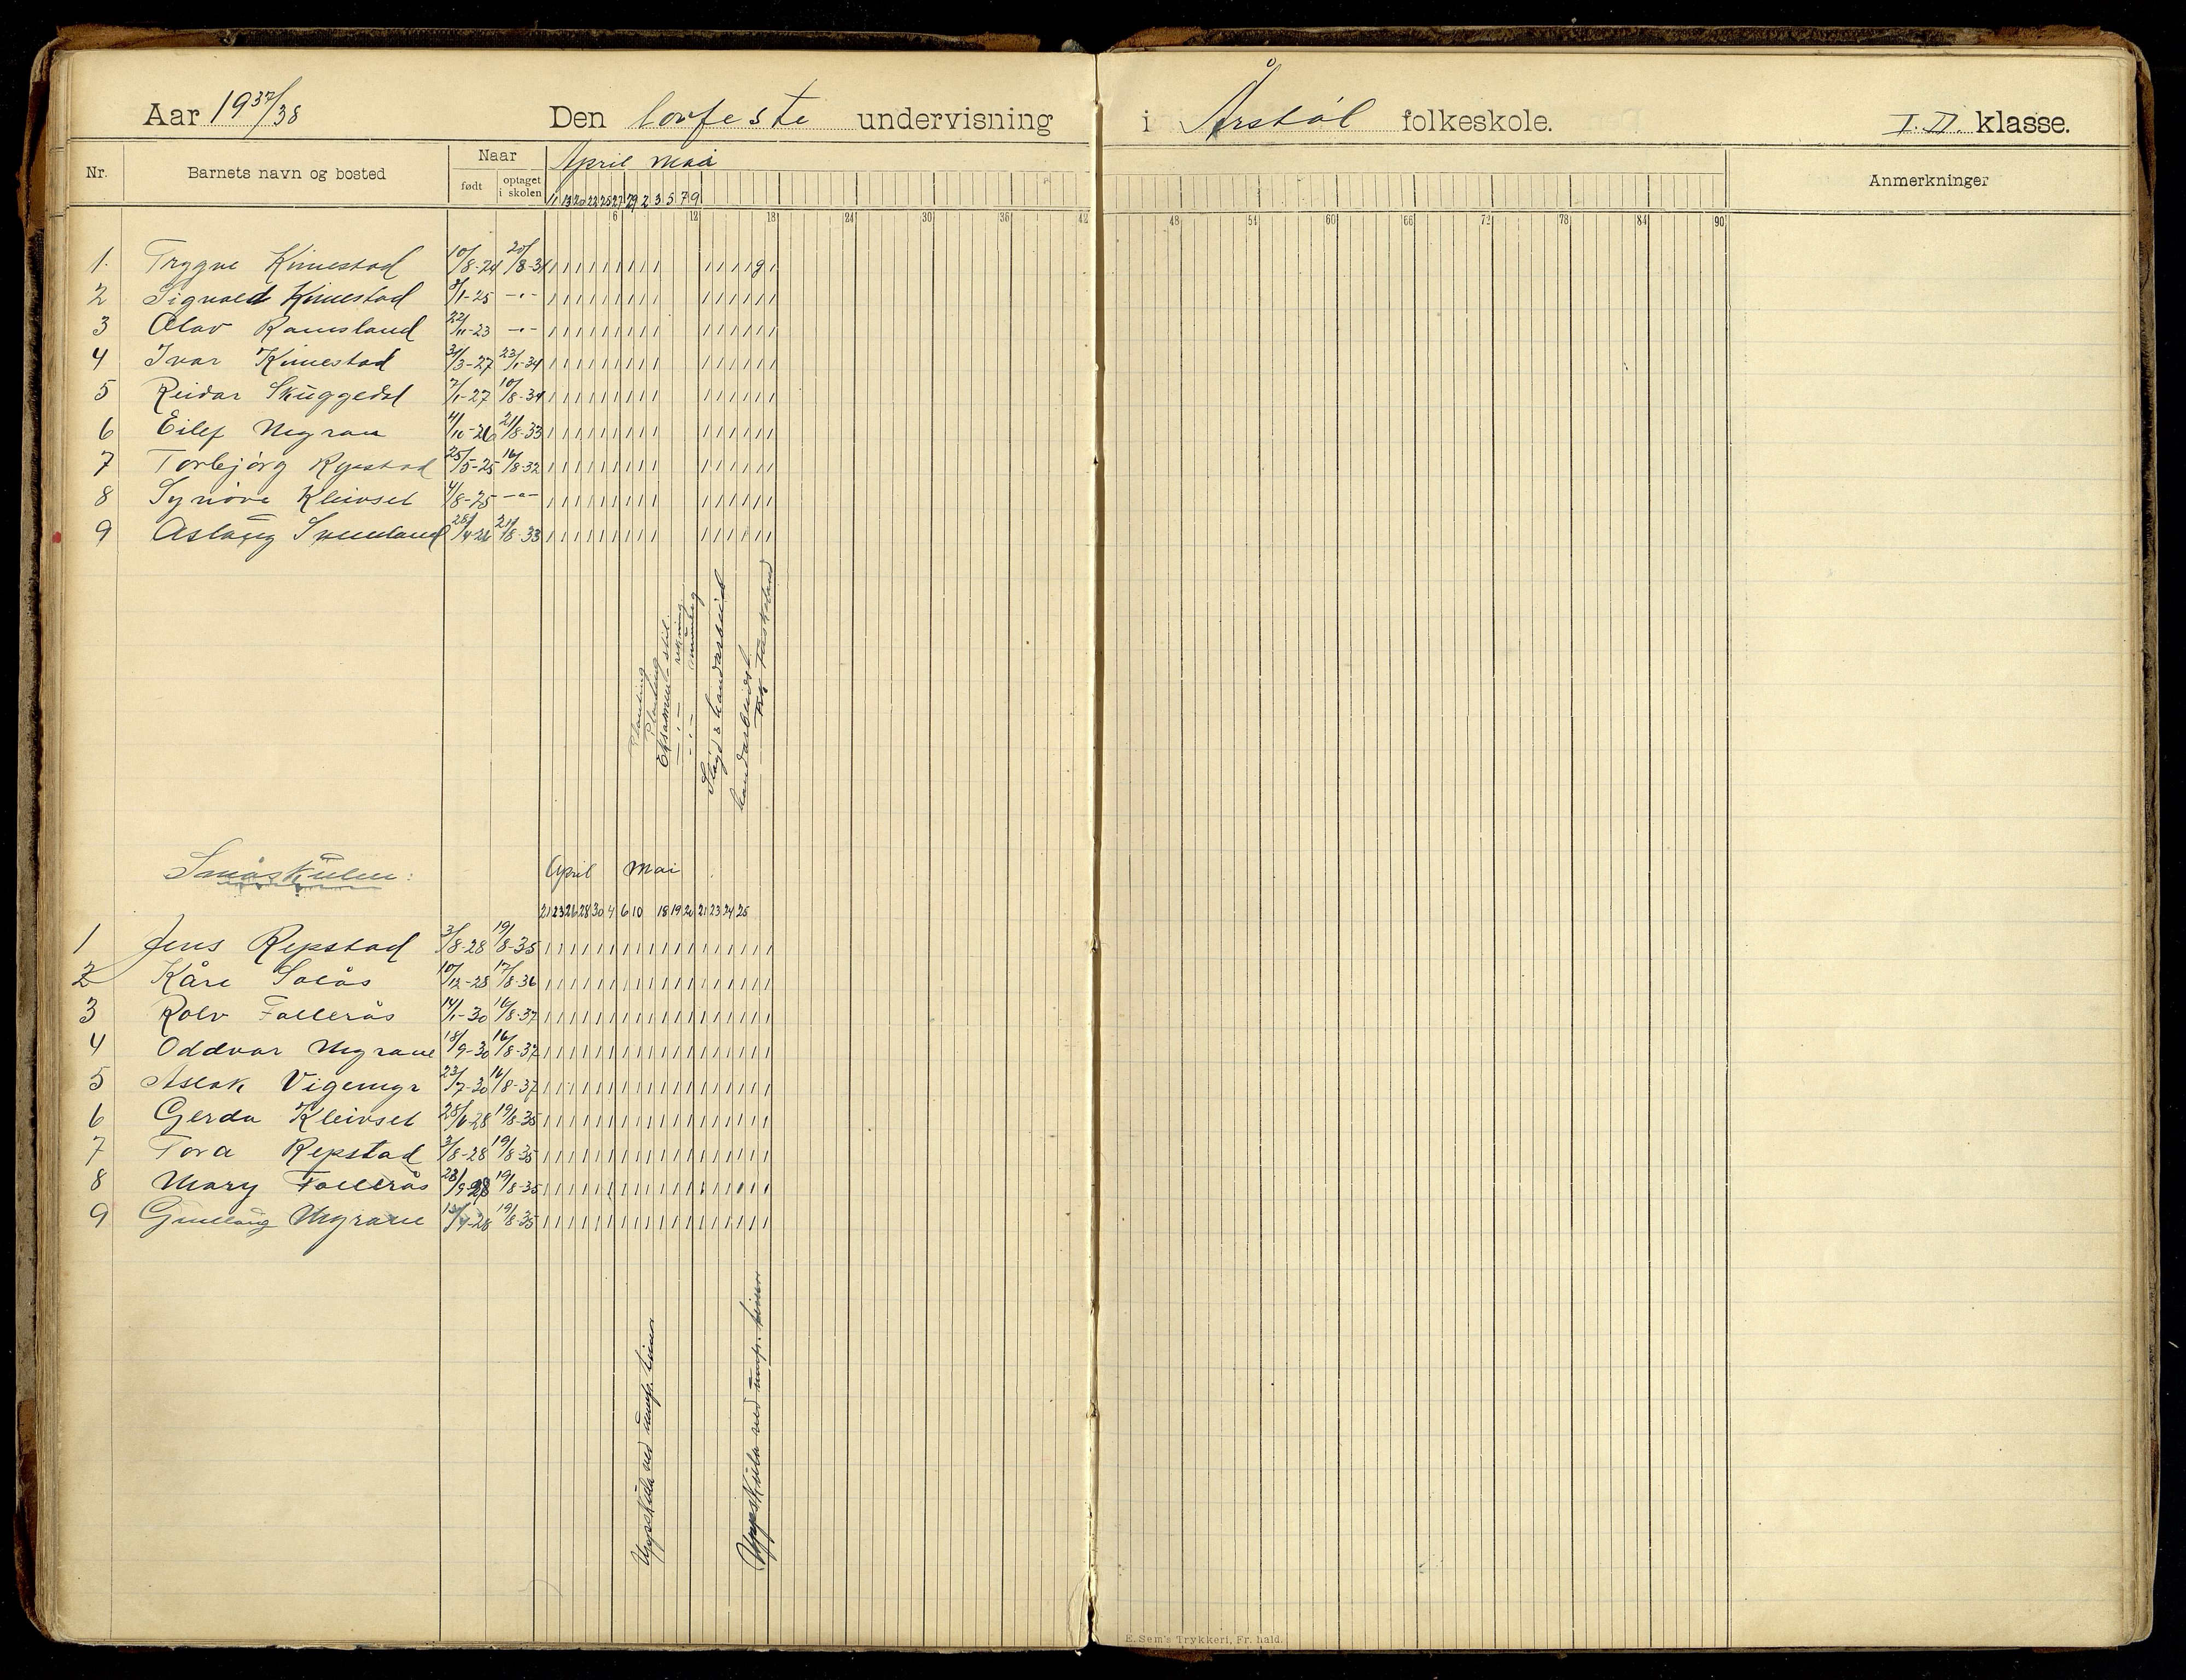 Aar 1937/38 Den lovfeste undervisning i Årstøl folkeskole. I. II. klasse.
Nr. Barnets navn og bosted Naar født optaget i skolen April mai Anmerkninger
11 13 20 22 25 27 29 2 3 5 7 9
6 12 18 24 30 36 42 48 54 60 66 72 78 84 90
1. Trygve Kimestad 10/8-24 20/8-31
2 Sigvald Kimestad 8/1-25 -"-
3 Olav Ramsland 22/11-23 -"-
4 Ivar Kimestad 31/3-27 23/1-34
5 Reidar Skuggedal 7/1-27 10/8-34
6 Eilef Mygran 4/10-26 21/8-33
7 Torbjørg Repstad 25/5-25 16/8-32
8 Synøve Kleivset 4/8-25 -"-
9 Aslaug Svenland 28/4-26 21/8-33
Planting
Planting
Eksamen - stil
-"- rekning
-"- munleg
Sløyd & handarbeid
handarbeid
Småskulen: April Mai
21 23 26 28 30 4 6 10 18 19 20 21 23 24 25
1 Jens Repstad 3/8-28 19/8-35
2 Kåre Solås 10/12-28 17/8-36
3 Rolv Fallerås 14/1-30 16/8-37
4 Oddvar Mygrane 18/9-30 16/8-37
5 Aslak Vigemyr 23/7-30 16/8-37
6 Gerda Kleivset 28/6-28 19/8-35
7 Tora Repstad 3/8-28 19/8-35
8 Mary Fallerås 23/9-28 19/8-35
9 Gunlaug Mygrane 13/4-28 19/8-35
Uppskula ved timor
Uppskula ved timor
E. Sem's Trykkeri, Fr. hald.